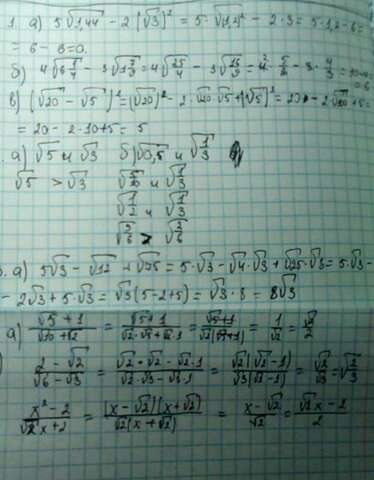 1. а) 5√1,44 − 2(√3)² = 5·√(1,2)² − 2·3 = 5·1,2 − 6 =
= 6 − 6 = 0.
б) 4√6 1/4 − 3√1 7/9 = 4√25/4 − 3√16/9 = 4·5/2 − 3·4/3 = 10−4
= 6
в) (√20 − √5)² = (√20)² − 2·√20·√5 + (√5)² = 20 − 2√100 + 5 =
= 20 − 2·10 + 5 = 5
а) √5 и √3 б) √0,5 и √1/3
√5 > √3 √5/10 и √1/3
√1/2 и √1/3
√3/6 > √2/6
а) 5√3 − √12 + √75 = 5·√3 − √4·√3 + √25·√3 = 5·√3 −
− 2√3 + 5·√3 = √3(5−2+5) = √3·8 = 8√3
а) (√5+1)/(√10+√2) = (√5+1)/(√2·√5+√2·1) = (√5+1)/(√2(√5+1)) = 1/√2 = √2/2
(2−√2)/(√6−√3) = (√2·√2−√2·1)/(√2·√3−√3·1) = (√2(√2−1))/(√3(√2−1)) = √2/√3 = √2/3
(x²−2)/(√2x+2) = ((x−√2)(x+√2))/(√2(x+√2)) = (x−√2)/√2 = (√2x−2)/2